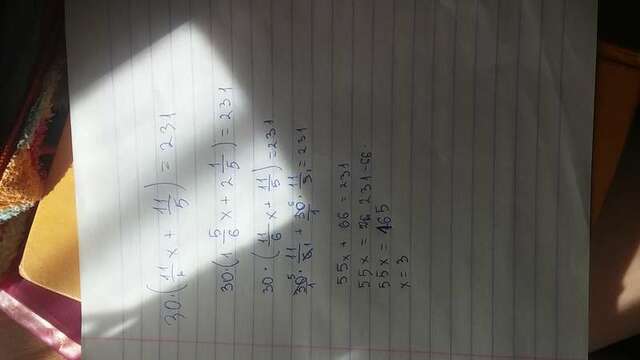 30·(11/6 x + 11/5) = 231
30·(1 5/6 x + 2 1/5) = 231
30 · (11/6 x + 11/5) = 231
30 5/1 · 11/6 1 + 30 6/1 · 11/5 1 = 231
55x + 66 = 231
55x = 231-66
55x = 165
x = 3